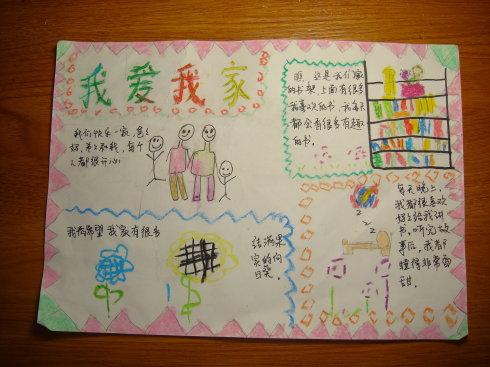 我爱我家
我们快乐一家,爸
妈,弟弟和我,每个
人都很开心
瞧,这是我们家
的书架,上面有很多
我喜欢的书,我每天
都会看很多有趣
的书。
我希望我家有很多
结满果
实的向
日葵。
每天晚上,
我都很喜欢
妈妈给我讲
书。听完故
事后,我都
睡得非常香
甜。
z
z
z